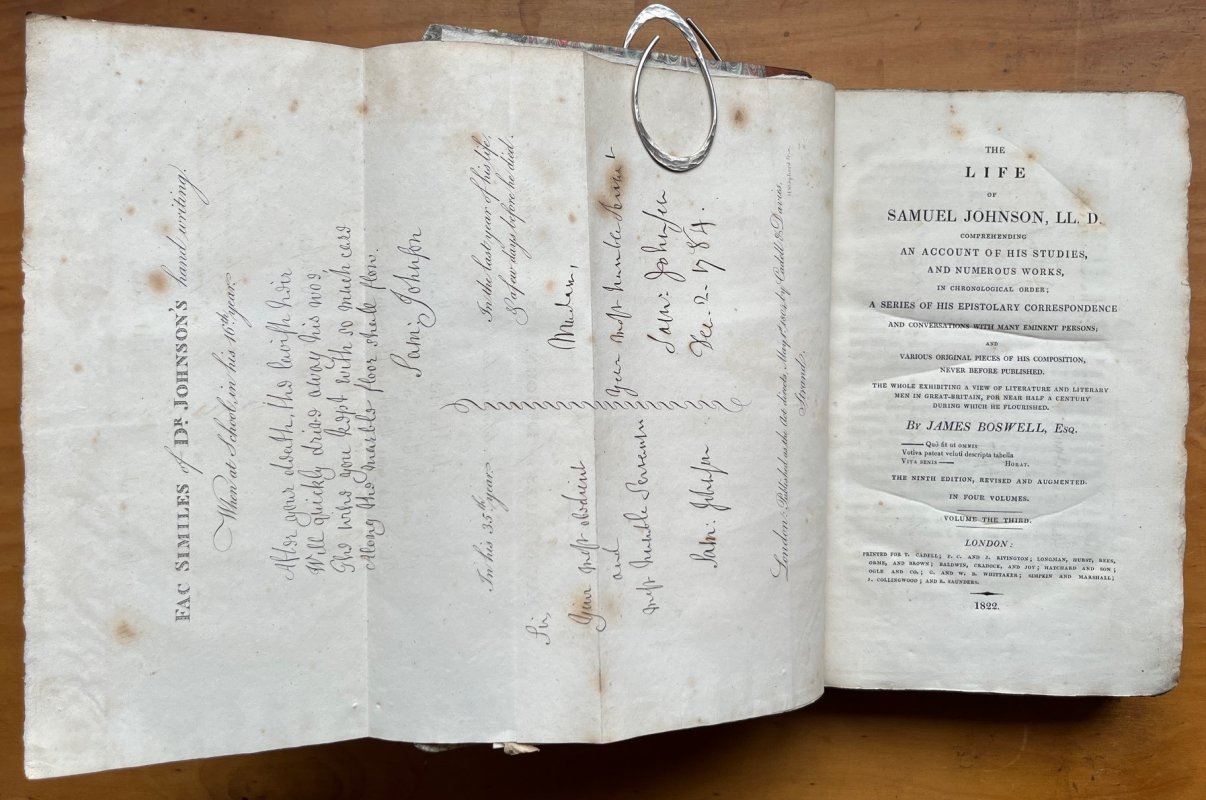 FAC SIMILES of DR. JOHNSON'S hand writing.
When at School, in his 16th year.
After your death, the lavish heir
Will quickly drive away his woe
The wine you kept with so much care
Along the marble floor shall flow.
Sam: Johnſon
In his 35th year.
Sir,
Your moſt obedient
and
moſt humble Servant
Sam: Johnſon
In the last year of his life,
& a few days before he died.
Madam,
Your moſt humble Servant
Sam: Johnſon
Dec. 2. 1784.
London: Published as the Act directs, May 1, by Cadell & Davies,
Strand.
THE
LIFE
OF
SAMUEL JOHNSON, LL. D.
COMPREHENDING
AN ACCOUNT OF HIS STUDIES,
AND NUMEROUS WORKS,
IN CHRONOLOGICAL ORDER;
A SERIES OF HIS EPISTOLARY CORRESPONDENCE
AND CONVERSATIONS WITH MANY EMINENT PERSONS;
AND
VARIOUS ORIGINAL PIECES OF HIS COMPOSITION,
NEVER BEFORE PUBLISHED.
THE WHOLE EXHIBITING A VIEW OF LITERATURE AND LITERARY
MEN IN GREAT-BRITAIN, FOR NEAR HALF A CENTURY
DURING WHICH HE FLOURISHED.
BY JAMES BOSWELL, ESQ.
—— Quò fit ut OMNIS
Votiva pateat veluti descripta tabella
VITA SENIS —— HORAT.
THE NINTH EDITION, REVISED AND AUGMENTED.
IN FOUR VOLUMES.
VOLUME THE THIRD.
LONDON:
PRINTED FOR T. CADELL; F. C. AND J. RIVINGTON; LONGMAN, HURST, REES,
ORME, AND BROWN; BALDWIN, CRADOCK, AND JOY; HATCHARD AND SON;
OGLE AND CO.; G. AND W. B. WHITTAKER; SIMPKIN AND MARSHALL;
J. COLLINGWOOD; AND R. SAUNDERS.
1822.